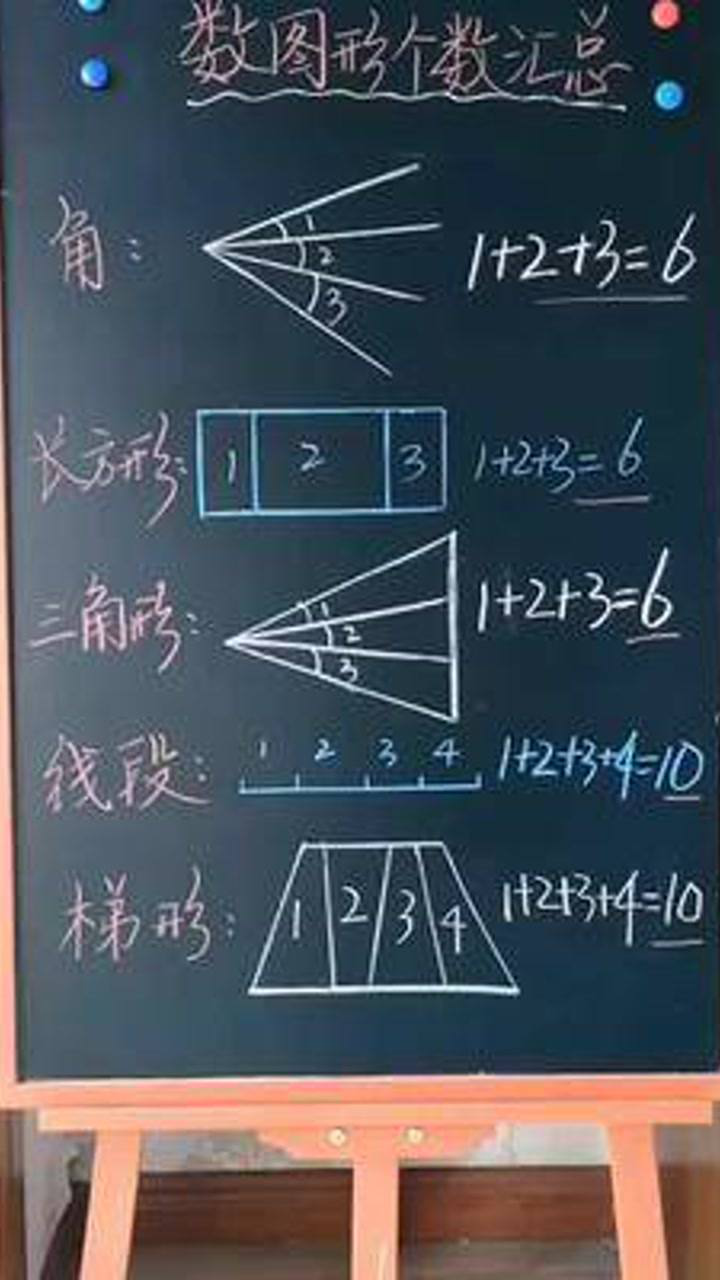 数图形个数汇总
角:
1
2
3
1+2+3=6
长方形:
1 2 3
1+2+3=6
三角形:
1
2
3
1+2+3=6
线段:
1 2 3 4
1+2+3+4=10
梯形:
1 2 3 4
1+2+3+4=10